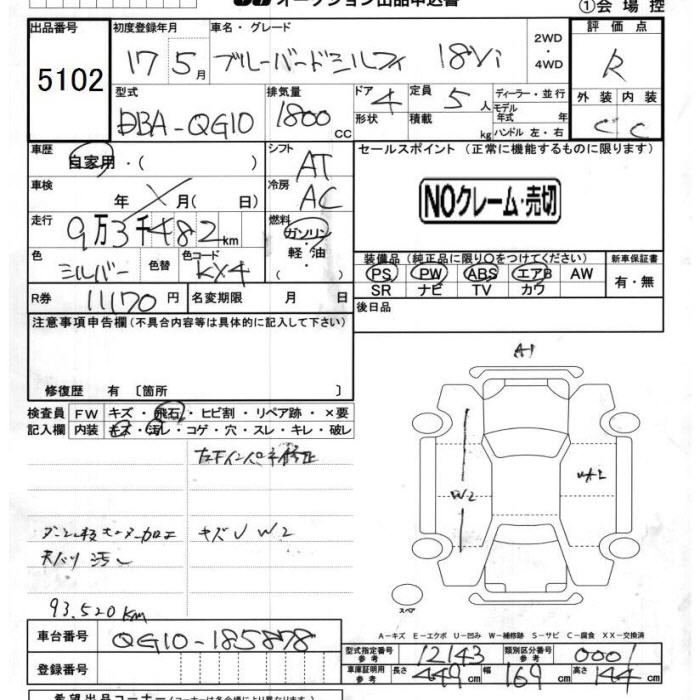 オークション出品申込書
①会場控
出品番号
5102
初度登録年月
17 5月
車名・グレード
ブルーバードシルフィ 18Vi
2WD・4WD
評価点
R
型式
DBA-QG10
排気量
1800 CC
ドア 4
形状
定員 5人
積載 kg
ディーラー・並行
モデル年式 年
ハンドル 左・右
外装 内装
C C
車歴
自家用・( )
シフト
AT
セールスポイント (正常に機能するものに限ります)
NOクレーム・売切
車検
年 X 月( 日)
冷房
AC
走行
9万3千482km
燃料
ガソリン・軽油・( )
色
シルバー
色替
色コード
KX4
装備品(純正品に限り○をつけてください)
PS PW ABS エアB AW
SR ナビ TV カワ
新車保証書
有・無
R券 11170円
名変期限 月 日
後日品
注意事項申告欄(不具合内容等は具体的に記入して下さい)
修復歴 有 〔箇所 〕
検査員記入欄
FW キズ・飛石・ヒビ割・リペア跡・×要
内装 キズ・汚レ・コゲ・穴・スレ・キレ・破レ
A1
W2
キズU W2
天バリ汚レ
93,520KM
スペア
A-キズ E-エクボ U-凹み W-補修跡 S-サビ C-腐食 XX-交換済
車台番号
QG10-185878
登録番号
型式指定番号 参考 12143
類別区分番号 参考 0001
車庫証明用 参考 長さ 449cm 幅 169cm 高さ 144cm
希望出品コーナー